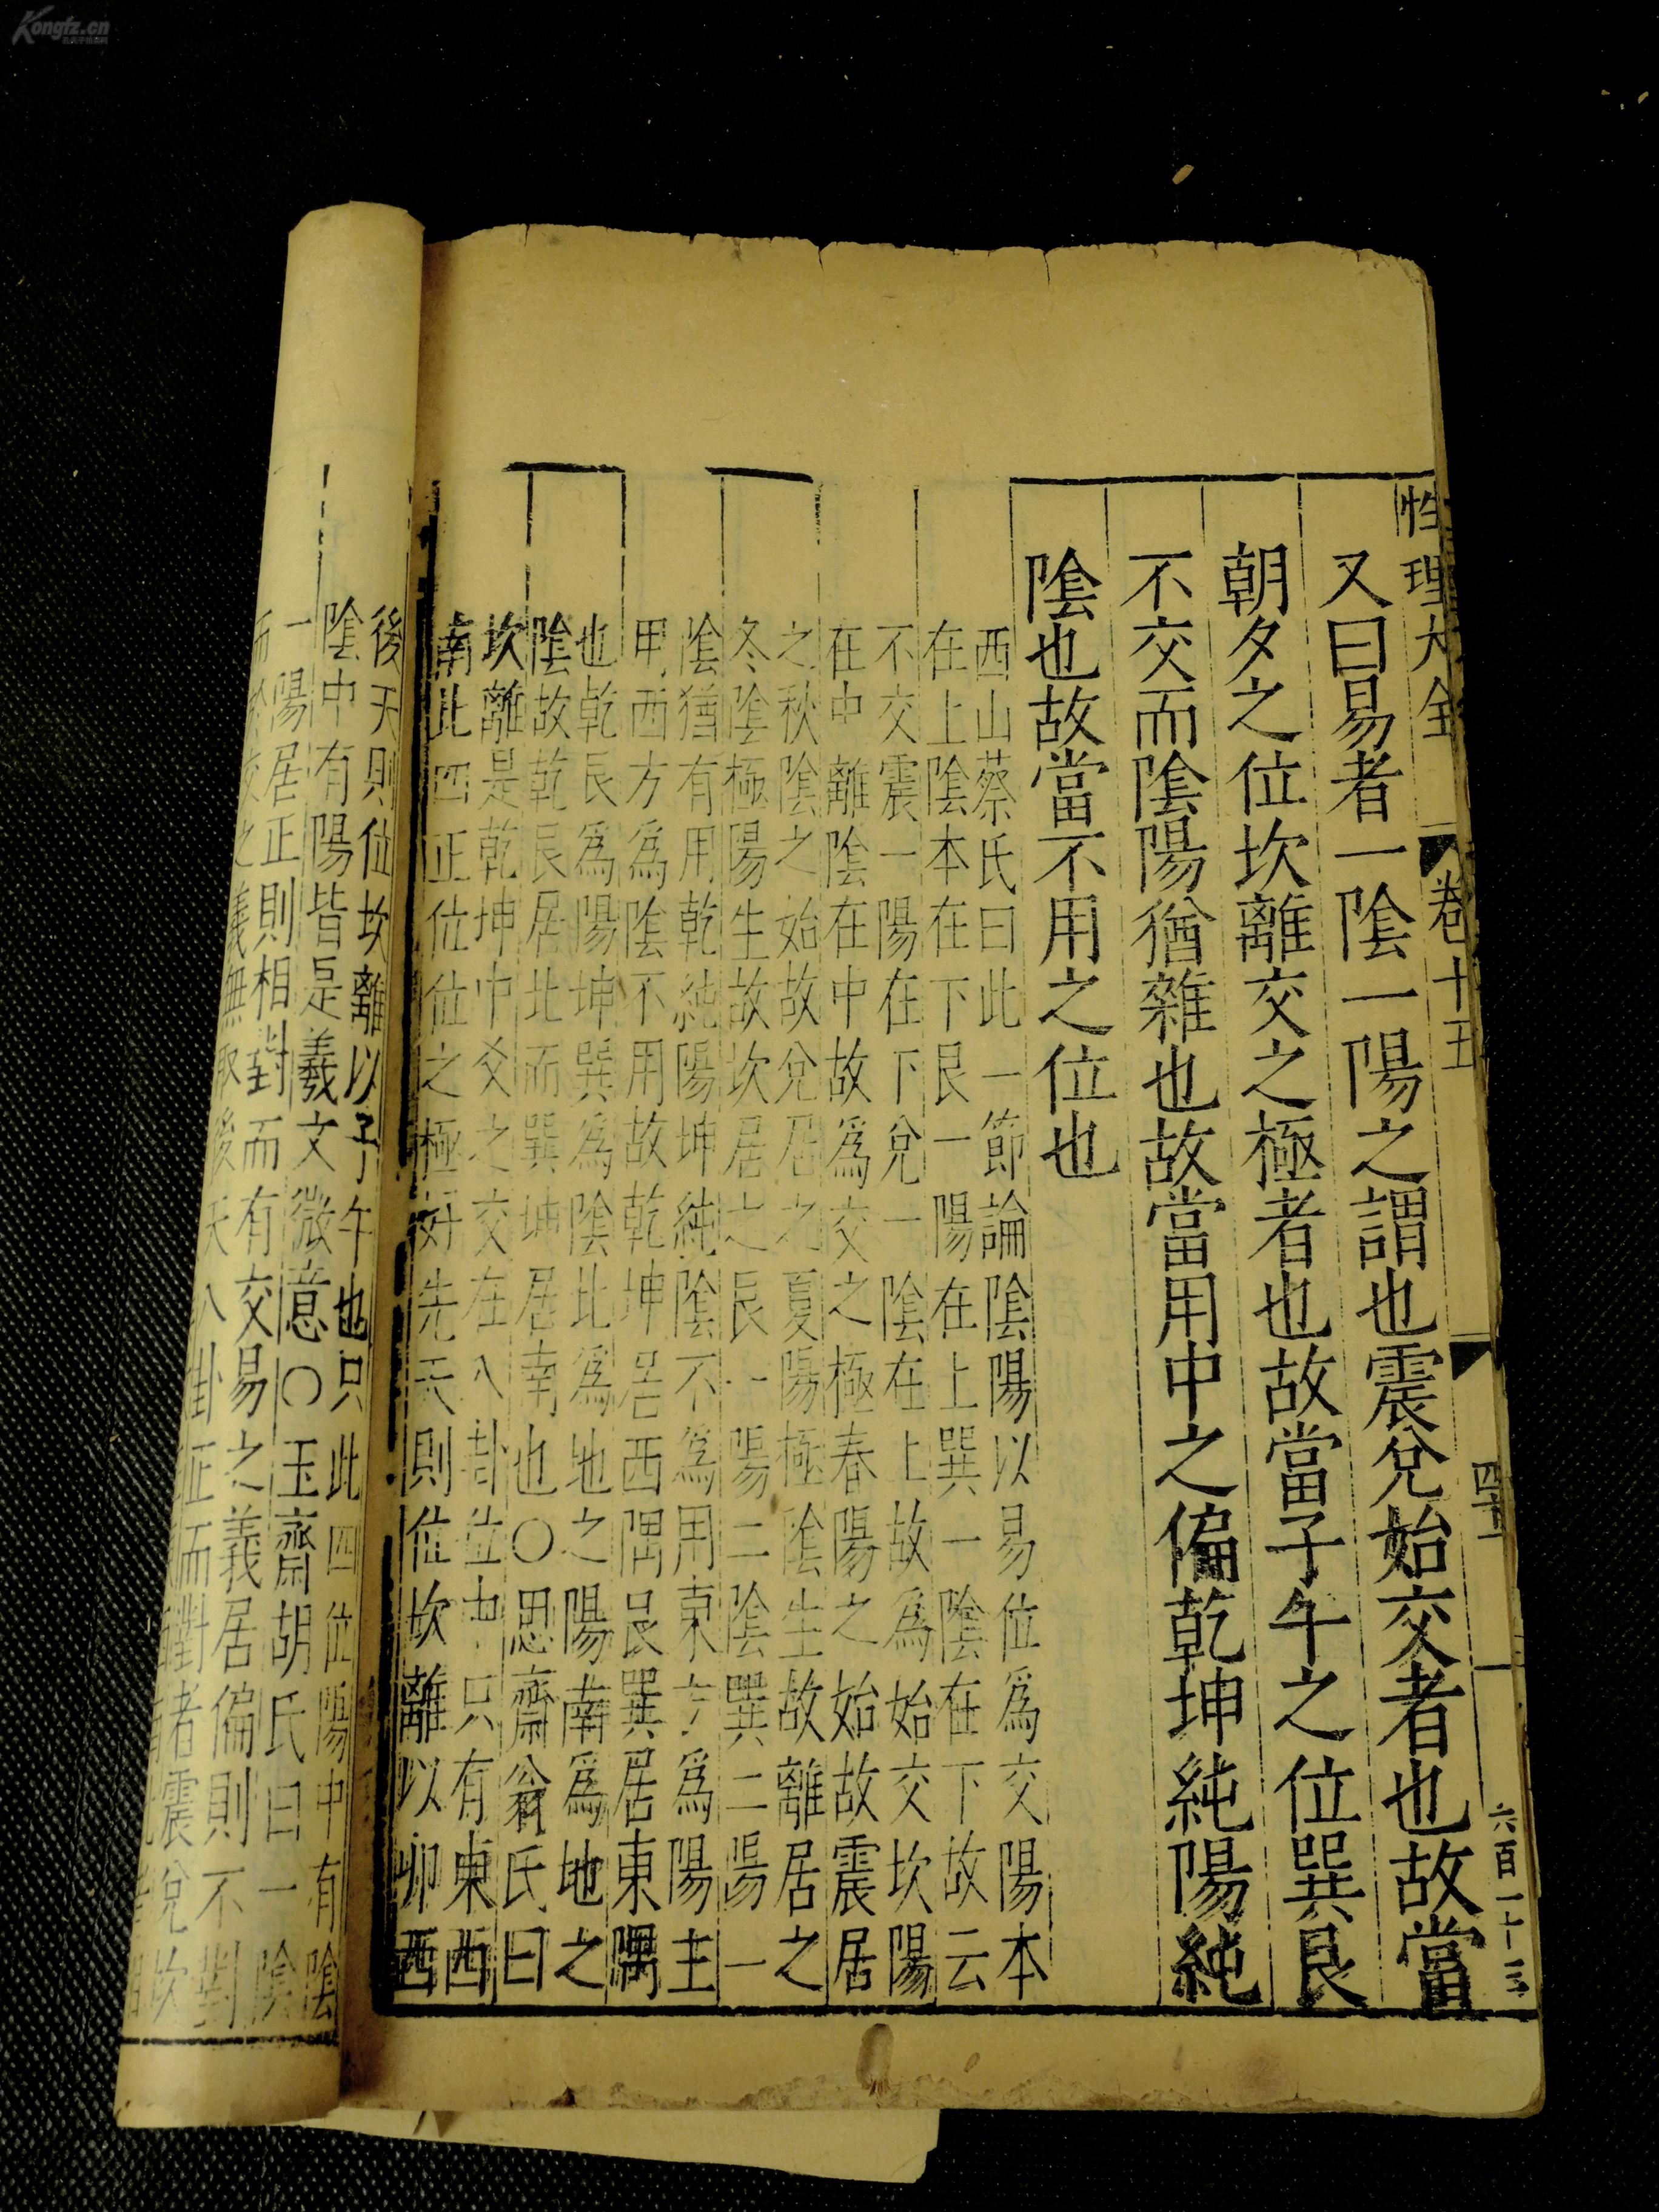 Kongfz.cn
性理大全 卷十五 六百一十三
又曰易者一陰一陽之謂也震兌始交者也故當
朝夕之位坎離交之極者也故當子午之位巽艮
不交而陰陽猶雜也故當用中之偏乾坤純陽純
陰也故當不用之位也
西山蔡氏曰此一節論陰陽以易位為交陽本
在上陰本在下艮一陽在上巽一陰在下故云
不交震一陽在下兌一陰在上故為始交坎陽
在中離陰在中故為交之極春陽之始故震居
之秋陰之始故兌居之夏陽極陰生故離居之
冬陰極陽生故坎居之艮一陽二陰巽二陽一
陰猶有用乾純陽坤純陰不為用東方為陽主
用西方為陰不用故乾坤居西隅艮巽居東隅
也乾艮為陽坤巽為陰北為地之陽南為地之
陰故乾艮居北而巽坤居南也○思齋翁氏曰
坎離是乾坤中爻之交在八卦位中只有東西
南北四正位位之極好先天則位坎離以卯酉
後天則位坎離以子午也只此四位陽中有陰
陰中有陽皆是羲文微意○玉齋胡氏曰一陰
一陽居正則相對而有交易之義居偏則不對
而於交之義無取後天八卦正而對者震兌坎